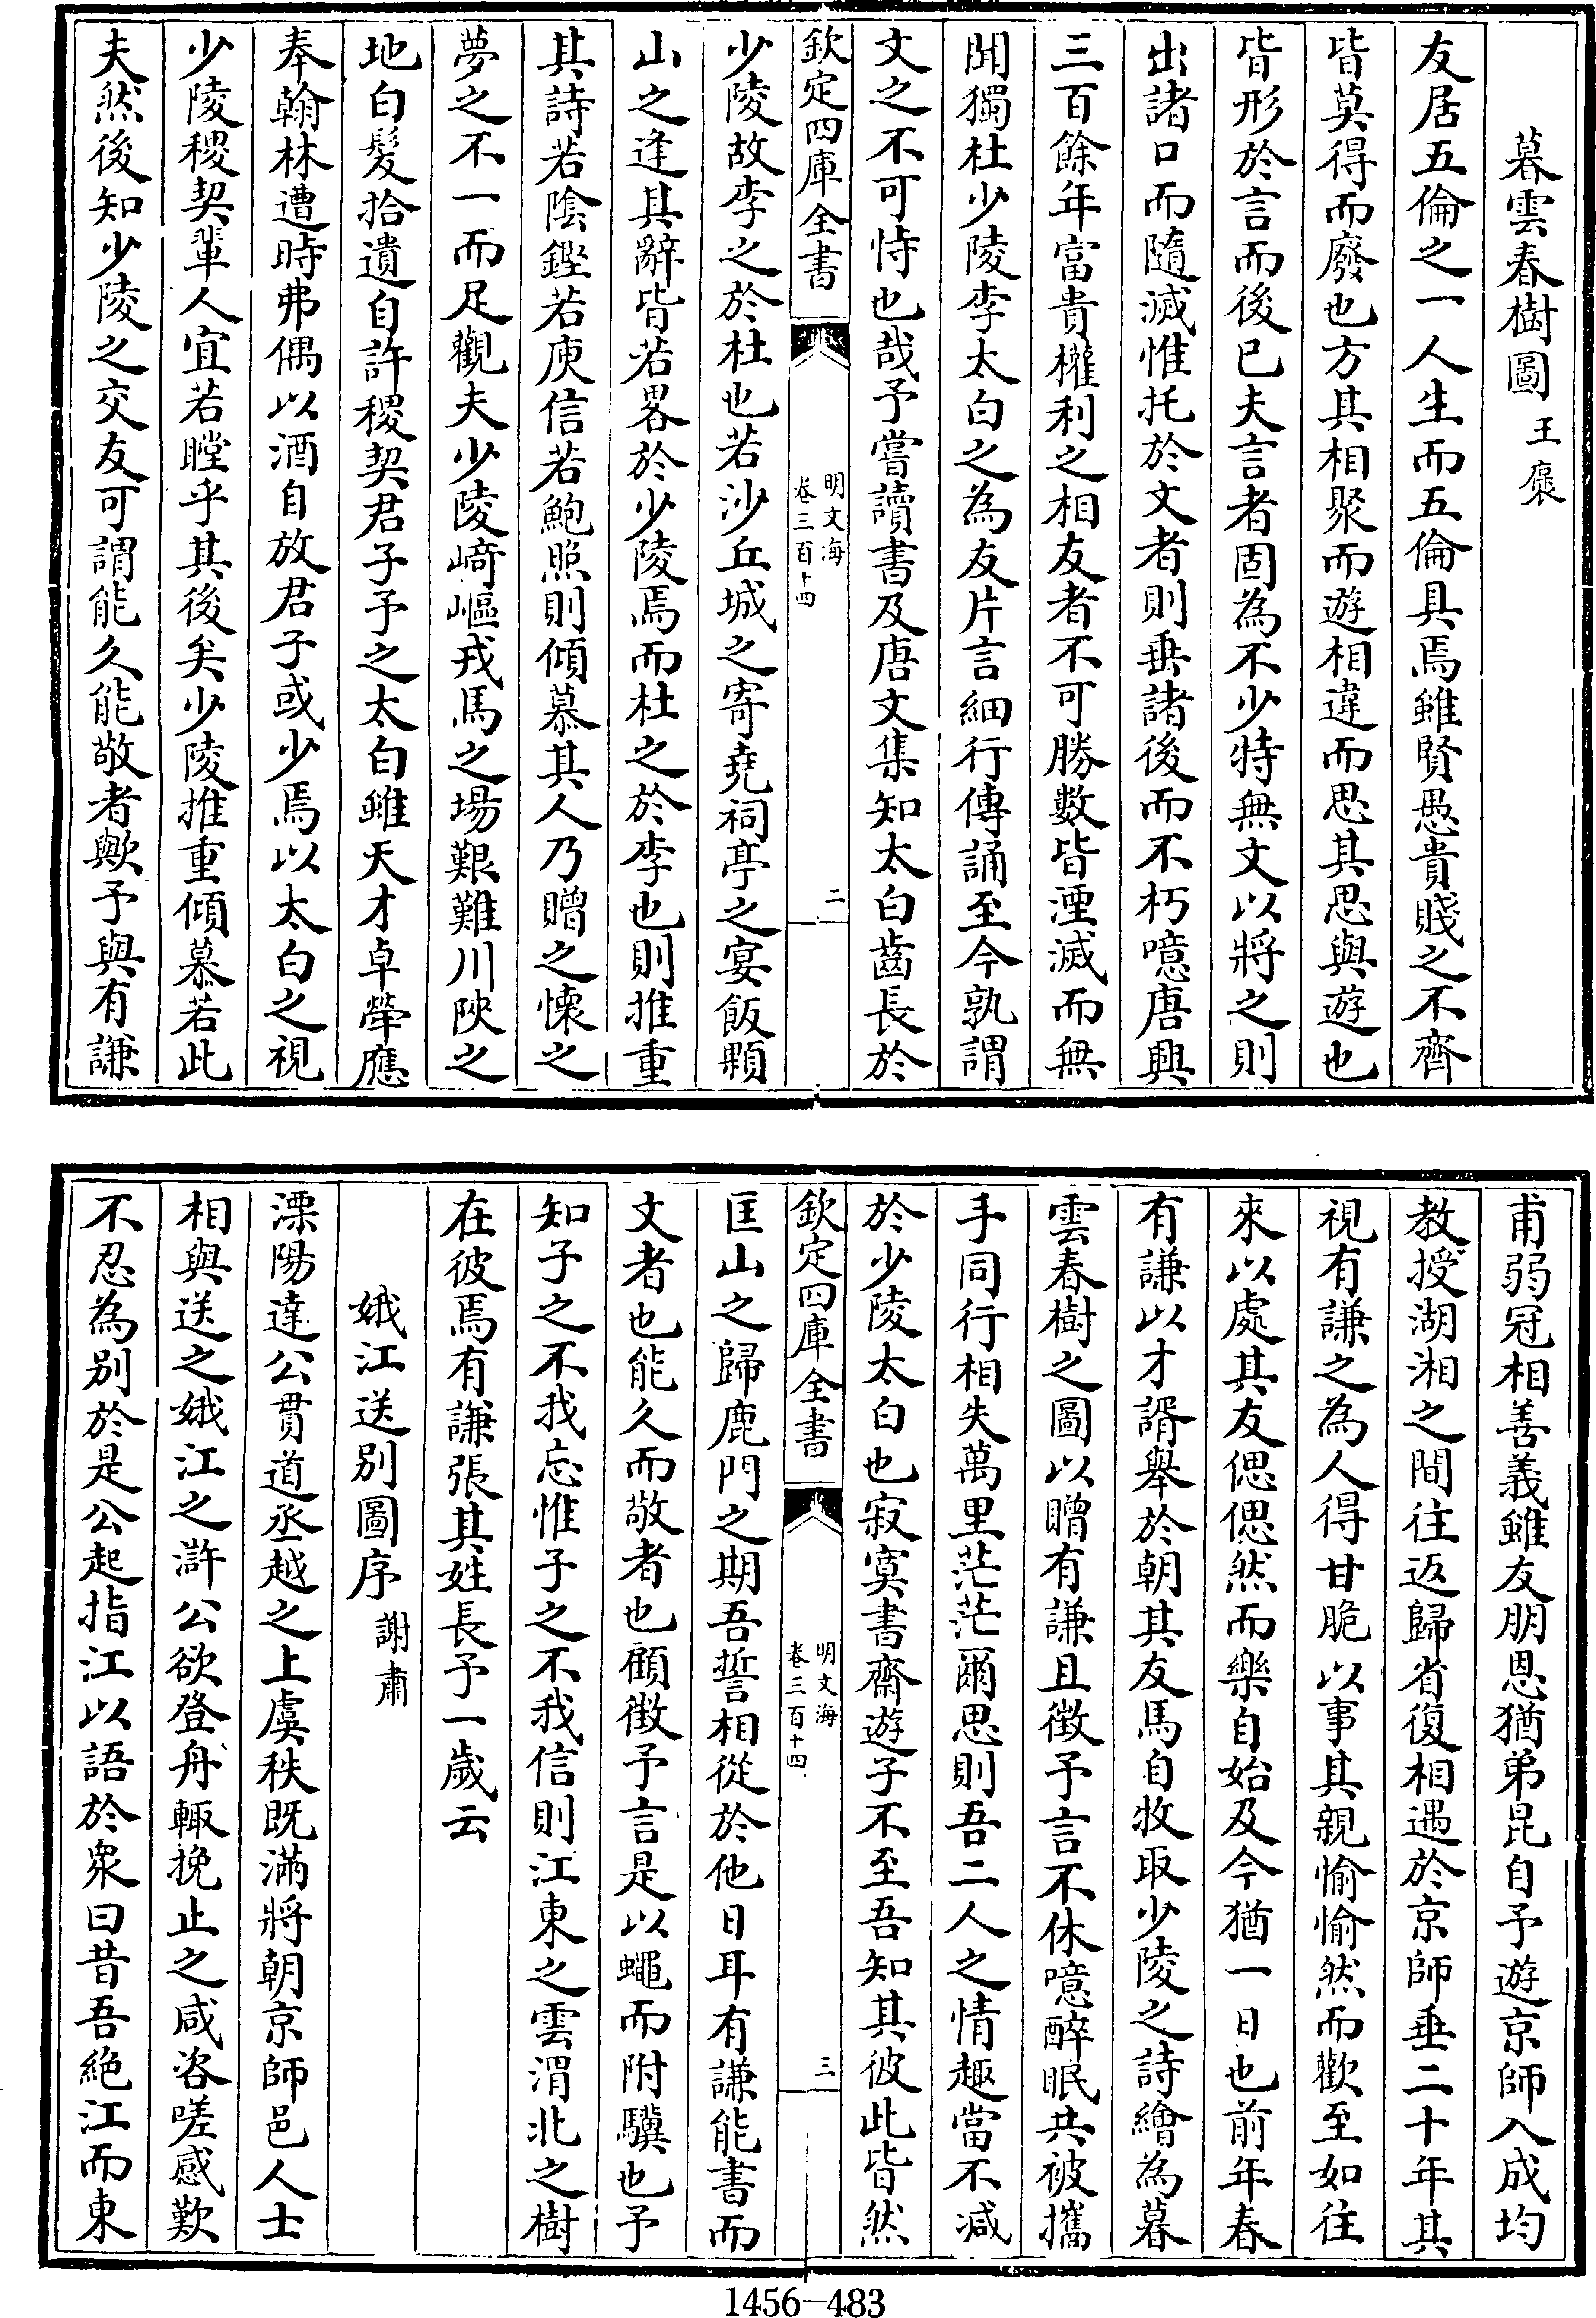 暮雲春樹圖 王褒
友居五倫之一人生而五倫具焉雖賢愚貴賤之不齊
皆莫得而廢也方其相聚而遊相違而思其思與遊也
皆形於言而後已夫言者固為不少特無文以將之則
出諸口而隨滅惟托於文者則垂諸後而不朽噫唐興
三百餘年富貴權利之相友者不可勝數皆湮滅而無
聞獨杜少陵李太白之為友片言細行傳誦至今孰謂
文之不可恃也哉予嘗讀書及唐文集知太白齒長於
欽定四庫全書
明文海
卷三百十四
二
少陵故李之於杜也若沙丘城之寄堯祠亭之宴飯顆
山之逢其辭皆若畧於少陵焉而杜之於李也則推重
其詩若陰鏗若庾信若鮑照則傾慕其人乃贈之懷之
夢之不一而足觀夫少陵崎嶇戎馬之場艱難川陝之
地白髮拾遺自許稷契君子予之太白雖天才卓犖應
奉翰林遭時弗偶以酒自放君子或少焉以太白之視
少陵稷契輩人宜若瞠乎其後矣少陵推重傾慕若此
夫然後知少陵之交友可謂能久能敬者歟予與有謙
甫弱冠相善義雖友朋恩猶弟昆自予遊京師入成均
教授湖湘之間往返歸省復相遇於京師垂二十年其
視有謙之為人得甘脆以事其親愉愉然而歡至如往
來以處其友偲偲然而樂自始及今猶一日也前年春
有謙以才諝舉於朝其友馬自牧取少陵之詩繪為暮
雲春樹之圖以贈有謙且徵予言不休噫醉眠共被攜
手同行相失萬里茫茫爾思則吾二人之情趣當不減
於少陵太白也寂寞書齋遊子不至吾知其彼此皆然
欽定四庫全書
明文海
卷三百十四
三
匡山之歸鹿門之期吾誓相從於他日耳有謙能書而
文者也能久而敬者也顧徵予言是以蠅而附驥也予
知子之不我忘惟子之不我信則江東之雲渭北之樹
在彼焉有謙張其姓長予一歲云
娥江送別圖序 謝肅
溧陽達公貫道丞越之上虞秩既滿將朝京師邑人士
相與送之娥江之滸公欲登舟輙挽止之咸咨嗟感歎
不忍為別於是公起指江以語於衆曰昔吾絶江而東
1456-483